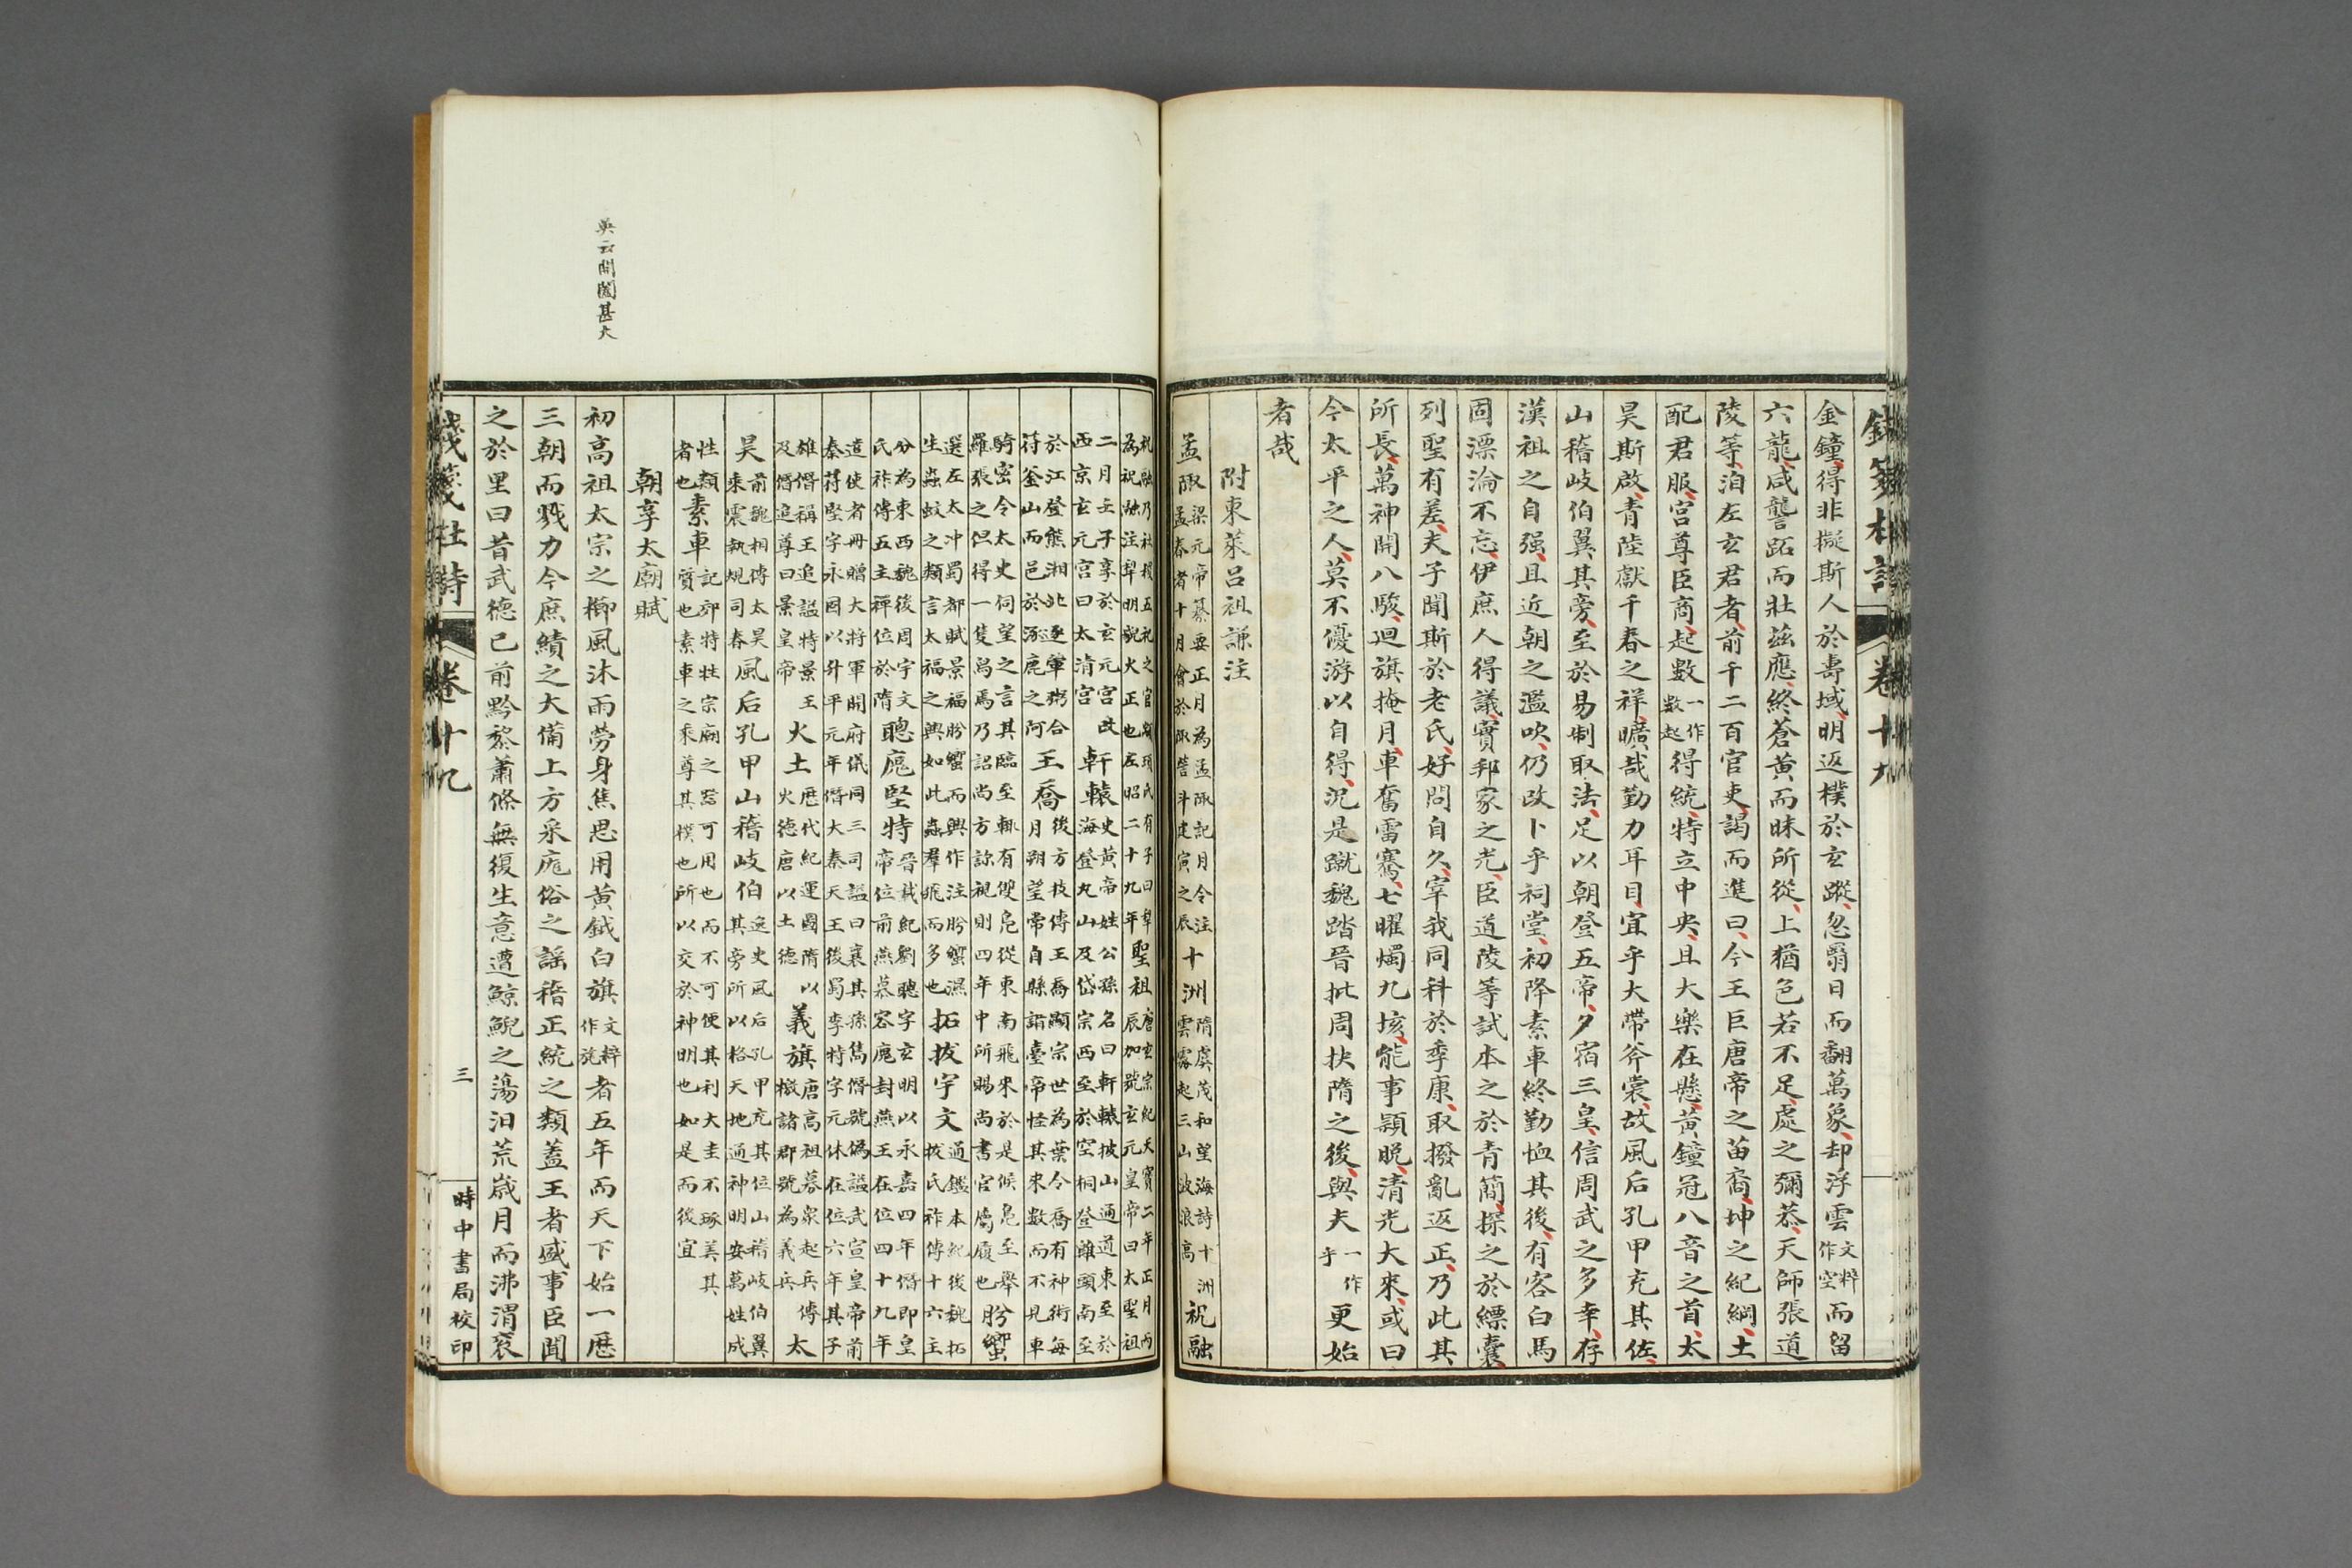 卷十九
金鐘得非擬斯人於壽域明返樸於玄蹤忽翳日而翻萬象却浮雲文粹作空而留
六龍咸讋跖而壯茲應終蒼黃而昧所從上猶色若不足處之彌恭天師張道
陵等洎左玄君者前千二百官吏謁而進曰今王巨唐帝之苗裔坤之紀綱土
配君服宮尊臣商起數一作數起得統特立中央且大樂在懸黃鐘冠八音之首太
昊斯啟青陸獻千春之祥曠哉勤力耳目宜乎大帶斧裳故風后孔甲充其佐
山稽岐伯翼其旁至於易制取法足以朝登五帝夕宿三皇信周武之多幸存
漢祖之自強且近朝之濫吹仍改卜乎祠堂初降素車終勤恤其後有客白馬
固漂淪不忘伊庶人得議實邦家之光臣道陵等試本之於青簡探之於縹囊
列聖有差夫子聞斯於老氏好問自久宰我同科於季康取撥亂返正乃此其
所長萬神開八駿迴旗掩月車奮雷騫七曜燭九垓能事顯晚清光大來或曰
今太平之人莫不優游以自得況是蹴魏踏晉批周抶隋之後與夫一作乎更始
者哉
附東萊呂祖謙注
孟陬梁元帝纂要正月為孟陬記月令注孟春者十月會於陬訾斗建寅之辰十洲隋虞茂和望海詩十洲雲霧起三山波浪高祝融
祝融乃社稷五祀之官顓頊氏有子曰犁為祝融注犁明貌火正也左昭二十九年聖祖唐玄宗紀天寶二年正月丙辰加號玄元皇帝曰太聖祖
二月壬子享於玄元宮改西京玄元宮曰太清宮軒轅史黃帝姓公孫名曰軒轅披山通道東至於海登丸山及岱宗西至於空桐登雞頭南至
於江登熊湘北逐葷粥合符釜山而邑於涿鹿之阿王喬後方技傳王喬顯宗世為葉令喬有神術每月朔望常自縣詣臺帝怪其來數而不見車
騎密令太史伺望之言其臨至輒有雙鳧從東南飛來於是候鳧至舉羅張之但得一隻舄焉乃詔尚方診視則四年中所賜尚書官屬履也肸蠁
選左太冲蜀都賦景福肸蠁而興作注肸蠁濕生蟲蚊之類言太福之興如此蟲羣飛而多也拓拔宇文通鑑本紀後魏拓拔氏祚傳十六主
分為東西魏後周宇文氏祚傳五主禪位於隋聰廆堅特晉載紀劉聰字玄明以永嘉四年僭即皇帝位前燕慕容廆封燕王在位四十九年
遣使者冊贈大將軍開府儀同三司諡曰襄其孫雋僭號偽諡武宣皇帝前秦苻堅字永固以升平元年僭大秦天王後蜀李特字元休在位六年其子
雄僭稱王追諡特景王及僭追尊曰景皇帝火土歷代紀運國隋以火德唐以土德義旗唐高祖募眾起兵傳檄諸郡號為義兵太
昊前魏相傳太昊乘震執規司春風后孔甲山稽岐伯逸史風后孔甲充其位山稽岐伯翼其旁所以格天地通神明安萬姓成
性類者也素車記郊特牲宗廟之器可用也而不可便其利大圭不琢美其質也素車之乘尊其樸也所以交於神明也如是而後宜
朝享太廟賦
初高祖太宗之櫛風沐雨勞身焦思用黃鉞白旗文粹作旄者五年而天下始一歷
三朝而戮力今庶績之大備上方采庬俗之謠稽正統之類蓋王者盛事臣聞
之於里曰昔武德已前黔黎蕭條無復生意遭鯨鯢之蕩汩荒歲月而沸渭衮
吳云開闔甚大
錢箋杜詩 卷十九 三 時中書局校印